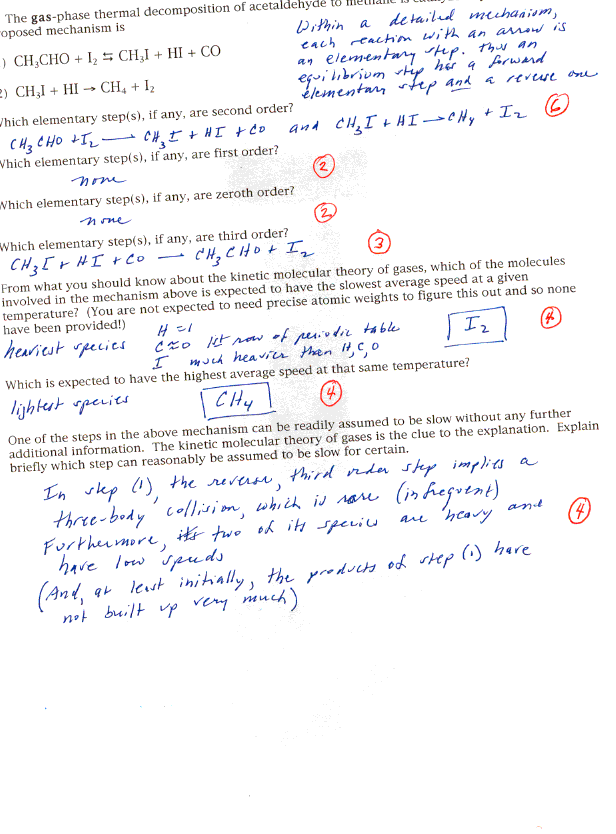 The gas-phase thermal decomposition of acetaldehyde to methane is
oposed mechanism is
) CH₃CHO + I₂ ⇆ CH₃I + HI + CO
2) CH₃I + HI → CH₄ + I₂
Within a detailed mechanism,
each reaction with an arrow is
an elementary step. Thus an
equilibrium step has a forward
elementary step and a reverse one
Which elementary step(s), if any, are second order?
6
CH₃CHO + I₂ — CH₃I + HI + CO and CH₃I + HI → CH₄ + I₂
Which elementary step(s), if any, are first order?
2
none
Which elementary step(s), if any, are zeroth order?
2
none
Which elementary step(s), if any, are third order?
3
CH₃I + HI + CO — CH₃CHO + I₂
From what you should know about the kinetic molecular theory of gases, which of the molecules
involved in the mechanism above is expected to have the slowest average speed at a given
temperature? (You are not expected to need precise atomic weights to figure this out and so none
have been provided!)
heaviest species
H = 1
C ≈ O 1st row of periodic table
I much heavier than H, C, O
I₂
4
Which is expected to have the highest average speed at that same temperature?
lightest species
CH₄
4
One of the steps in the above mechanism can be readily assumed to be slow without any further
additional information. The kinetic molecular theory of gases is the clue to the explanation. Explain
briefly which step can reasonably be assumed to be slow for certain.
In step (1), the reverse, third order step implies a
three-body collision, which is rare (infrequent)
Furthermore, two of its species are heavy and
have low speeds
4
(And, at least initially, the products of step (1) have
not built up very much)